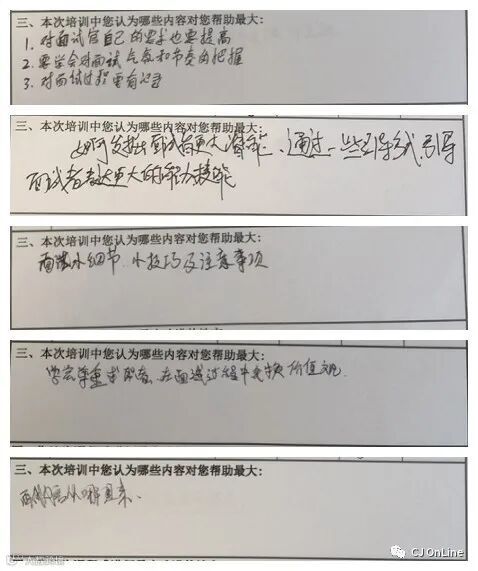 三、本次培训中您认为哪些内容对您帮助最大:
1. 对面试官自己的要求也要提高
2. 要学会对面试气氛和节奏的把握
3. 对面试过程要有记录
三、本次培训中您认为哪些内容对您帮助最大:
如何发掘面试者更大潜能、通过一些引导式、引导
面试者表达更大的能力技能
三、本次培训中您认为哪些内容对您帮助最大:
面试小细节、小技巧及注意事项
三、本次培训中您认为哪些内容对您帮助最大:
学会尊重求职者、在面试过程中
价值观.
三、本次培训中您认为哪些内容对您帮助最大:
CJOnLine